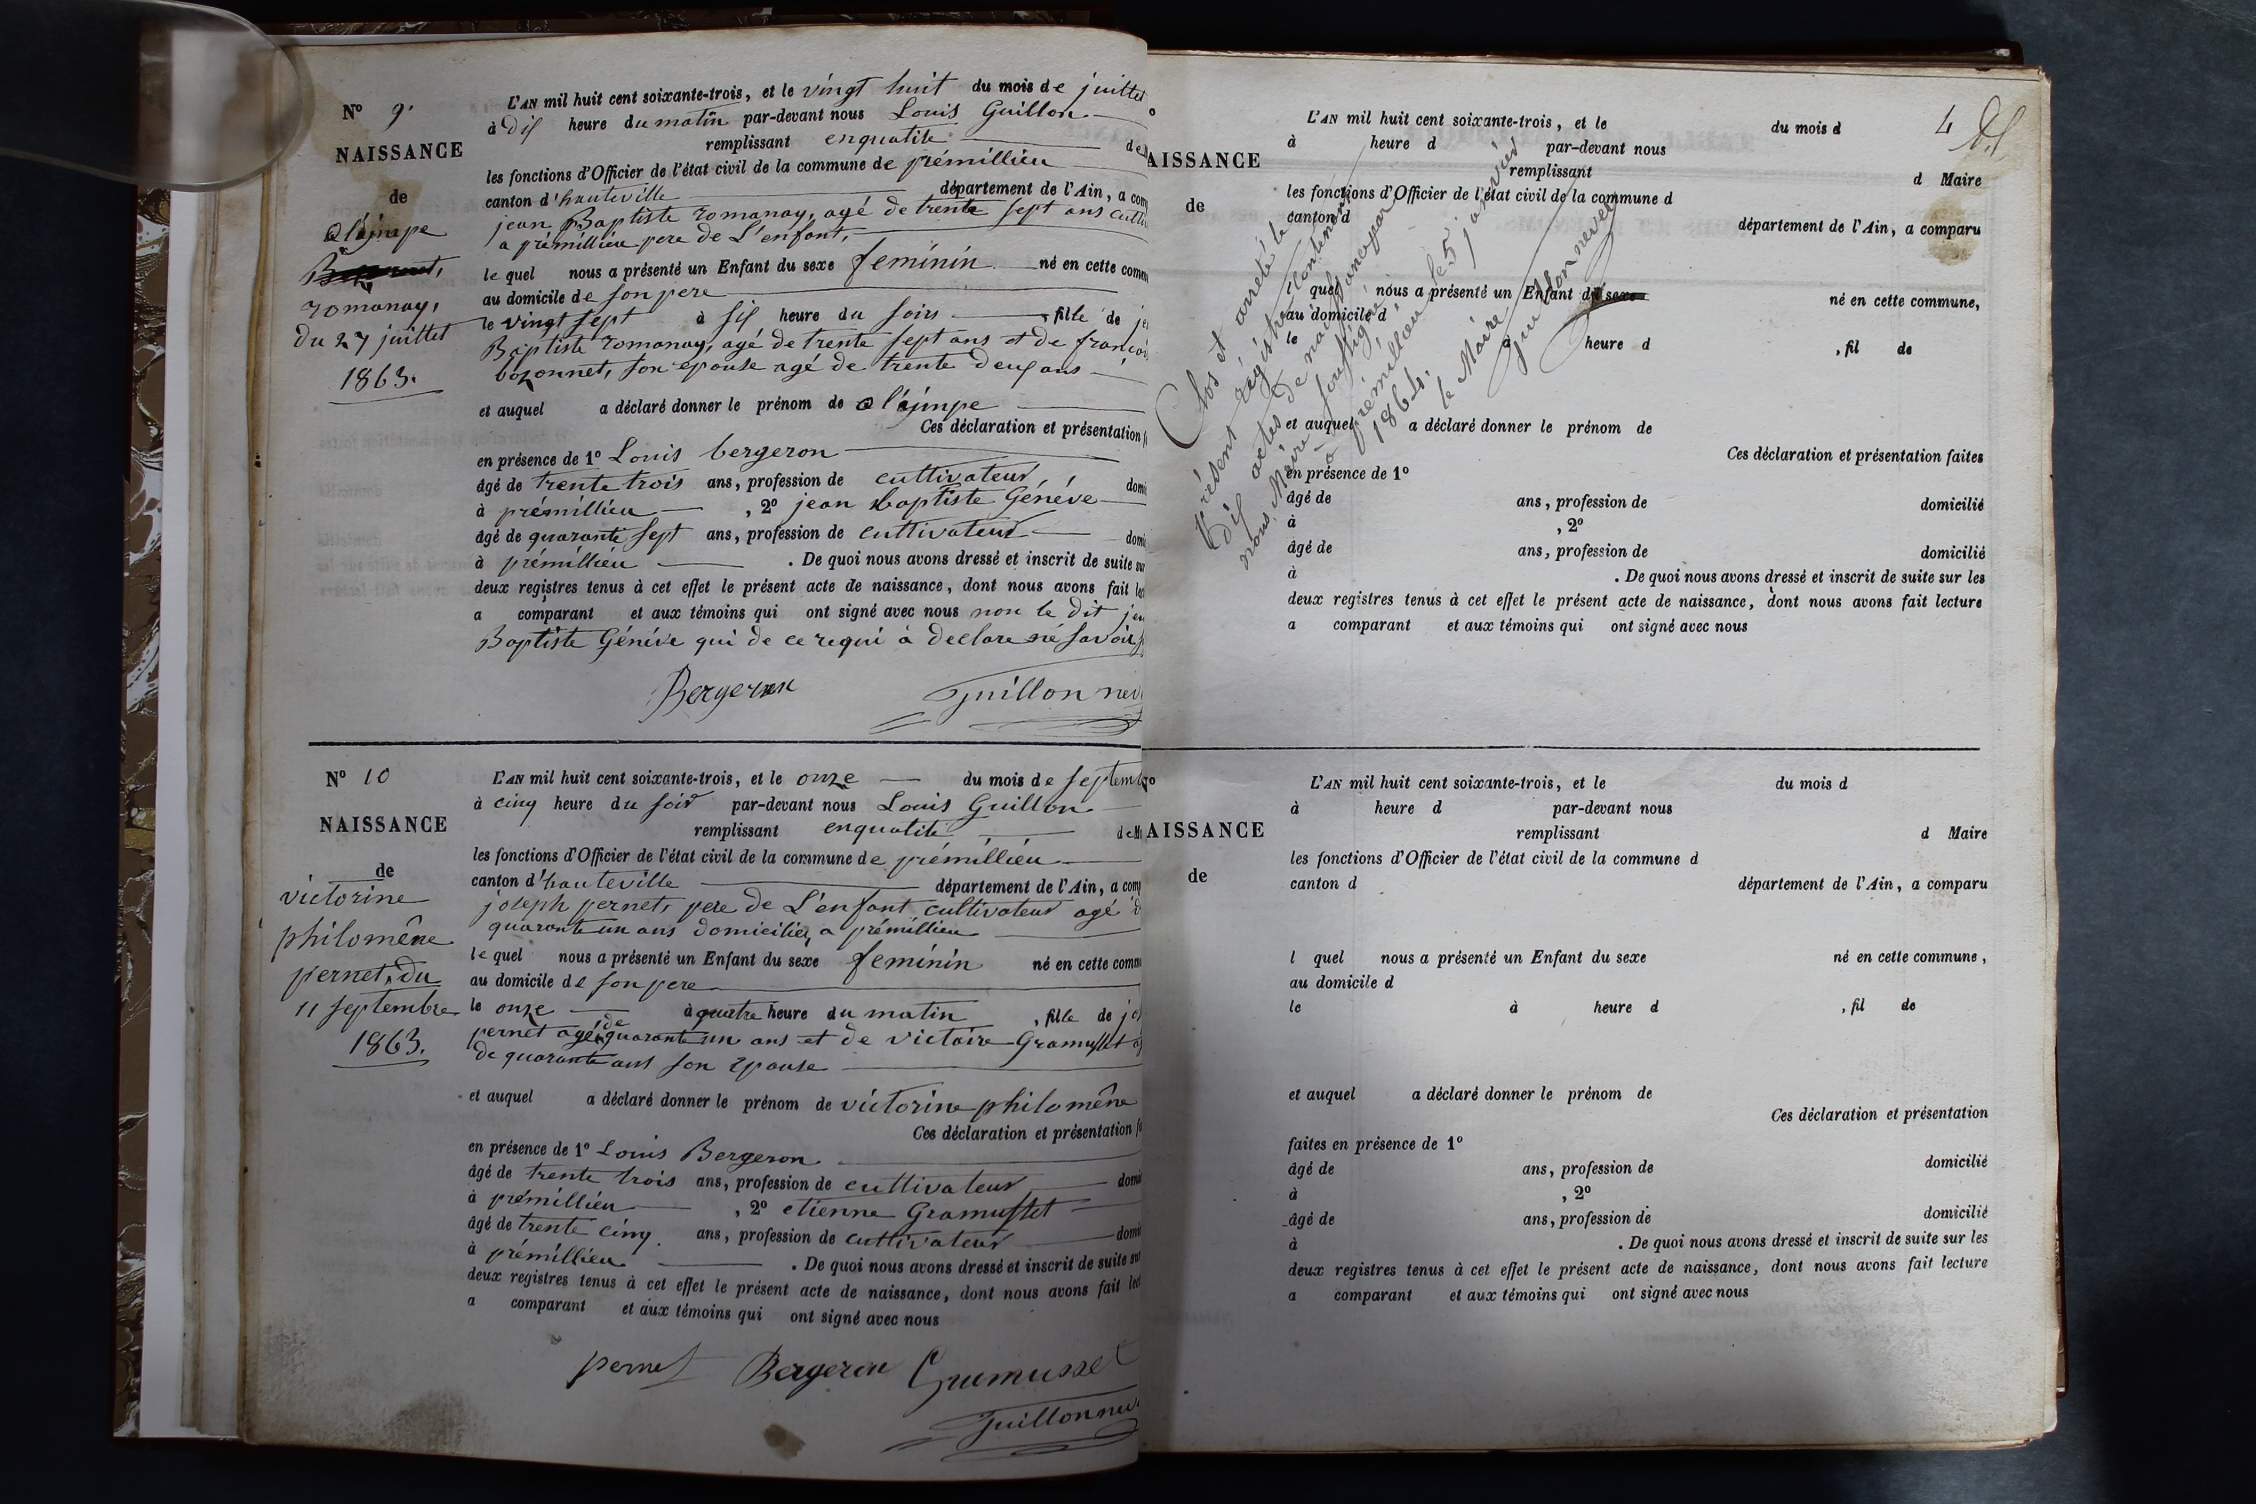 N° 9.
NAISSANCE
de
olijmpe
romanay,
du 27 juillet
1863.
L'AN mil huit cent soixante-trois, et le vingt huit du mois de juillet
à dix heure du matin par-devant nous Louis Guillon
remplissant enqualité de
les fonctions d'Officier de l'état civil de la commune de prémillieu
canton d'hauteville département de l'Ain, a com
jean Baptiste romanay, agé de trente sept ans culti
a prémillieu pere de L'enfant,
le quel nous a présenté un Enfant du sexe feminin né en cette comm
au domicile de son pere
le vingt sept à six heure du soirs , fille de je
Baptiste romanay, agé de trente sept ans et de françoi
bozonnet, son epouse agé de trente deux ans
et auquel a déclaré donner le prénom de olijmpe
Ces déclaration et présentation f
en présence de 1° Louis bergeron
âgé de trente trois ans, profession de cultivateur domi
à prémillieu , 2° jean baptiste Généve
âgé de quarante sept ans, profession de cultivateur domi
à prémillieu . De quoi nous avons dressé et inscrit de suite sur
deux registres tenus à cet effet le présent acte de naissance, dont nous avons fait lec
a comparant et aux témoins qui ont signé avec nous non le dit jea
Baptiste Généve qui de ce requi à declare né savoir
Bergeron Guillon nev
N° 10
NAISSANCE
de
victorine
philomêne
pernet, du
11 septembre
1863.
L'AN mil huit cent soixante-trois, et le onze du mois de septemb
à cinq heure du soir par-devant nous Louis Guillon
remplissant enqualité de M
les fonctions d'Officier de l'état civil de la commune de prémillieu
canton d'hauteville département de l'Ain, a comp
joseph pernet, pere de L'enfant cultivateur agé d
quarante un ans domicilié, a prémillieu
le quel nous a présenté un Enfant du sexe feminin né en cette comm
au domicile de son pere
le onze à quatre heure du matin , fille de jos
pernet agé de quarante un ans et de victoire Gramusset a
de quarante ans son epouse
et auquel a déclaré donner le prénom de victorine philomêne
Ces déclaration et présentation fa
en présence de 1° Louis Bergeron
âgé de trente trois ans, profession de cultivateur domi
à prémillieu , 2° etienne Gramusset
âgé de trente cinq ans, profession de cultivateur domi
à prémillieu . De quoi nous avons dressé et inscrit de suite sur
deux registres tenus à cet effet le présent acte de naissance, dont nous avons fait lec
a comparant et aux témoins qui ont signé avec nous
pernet Bergeron Gramusset
Guillon nev
4
AISSANCE
de
L'AN mil huit cent soixante-trois, et le du mois d
à heure d par-devant nous
remplissant d Maire
les fonctions d'Officier de l'état civil de la commune d
canton d département de l'Ain, a comparu
l quel nous a présenté un Enfant du sexe né en cette commune,
au domicile d
le à heure d , fil de
et auquel a déclaré donner le prénom de
Ces déclaration et présentation faites
en présence de 1°
âgé de ans, profession de domicilié
à , 2°
âgé de ans, profession de domicilié
à . De quoi nous avons dressé et inscrit de suite sur les
deux registres tenus à cet effet le présent acte de naissance, dont nous avons fait lecture
a comparant et aux témoins qui ont signé avec nous
Clos et arreté le
présent régistre contenant
dix actes de naissance par
nous, Maire soussigné
à prémillieu le 5 janvier
1864.
le Maire
Guillon neveu
AISSANCE
de
L'AN mil huit cent soixante-trois, et le du mois d
à heure d par-devant nous
remplissant d Maire
les fonctions d'Officier de l'état civil de la commune d
canton d département de l'Ain, a comparu
l quel nous a présenté un Enfant du sexe né en cette commune,
au domicile d
le à heure d , fil de
et auquel a déclaré donner le prénom de
Ces déclaration et présentation
faites en présence de 1°
âgé de ans, profession de domicilié
à , 2°
âgé de ans, profession de domicilié
à . De quoi nous avons dressé et inscrit de suite sur les
deux registres tenus à cet effet le présent acte de naissance, dont nous avons fait lecture
a comparant et aux témoins qui ont signé avec nous